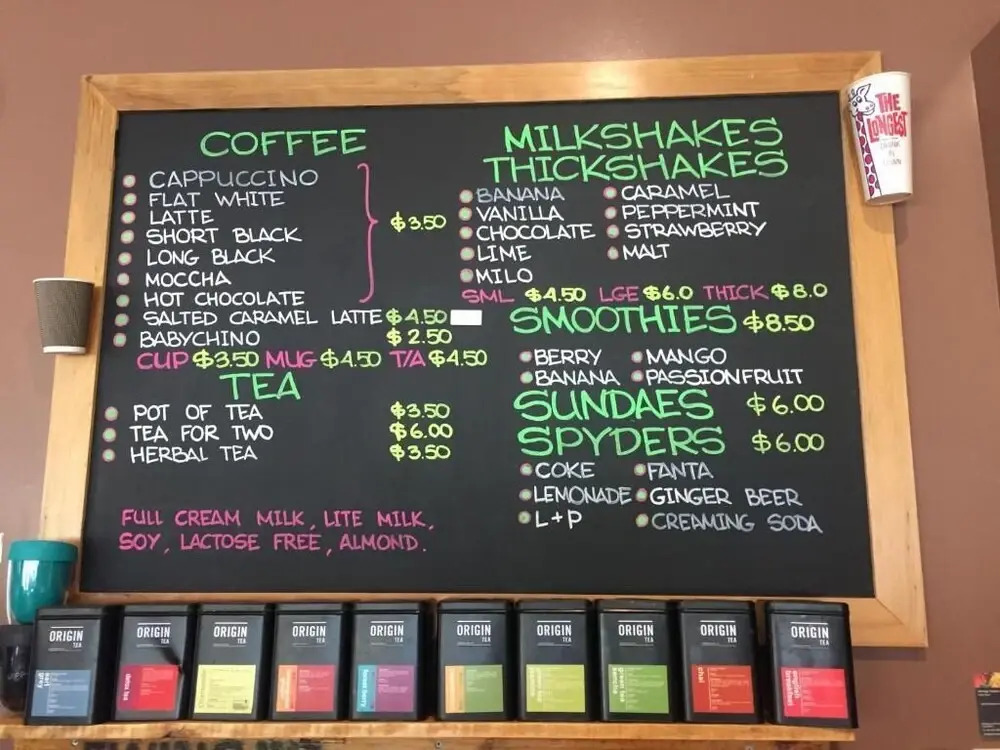 COFFEE
CAPPUCCINO
FLAT WHITE
LATTE
SHORT BLACK
LONG BLACK
MOCCHA
HOT CHOCOLATE
$3.50
SALTED CARAMEL LATTE $4.50
BABYCHINO $2.50
CUP $3.50 MUG $4.50 T/A $4.50
TEA
POT OF TEA $3.50
TEA FOR TWO $6.00
HERBAL TEA $3.50
FULL CREAM MILK, LITE MILK,
SOY, LACTOSE FREE, ALMOND.
MILKSHAKES
THICKSHAKES
BANANA CARAMEL
VANILLA PEPPERMINT
CHOCOLATE STRAWBERRY
LIME MALT
MILO
SML $4.50 LGE $6.0 THICK $8.0
SMOOTHIES $8.50
BERRY MANGO
BANANA PASSIONFRUIT
SUNDAES $6.00
SPYDERS $6.00
COKE FANTA
LEMONADE GINGER BEER
L+P CREAMING SODA
THE
LONGEST
DRINK
IN
TOWN
ORIGIN
TEA
earl grey
ORIGIN
TEA
detox tea
ORIGIN
TEA
ORIGIN
TEA
ORIGIN
TEA
ORIGIN
TEA
ORIGIN
TEA
ORIGIN
TEA
green tea
sencha
ORIGIN
TEA
chai
ORIGIN
TEA
english
breakfast